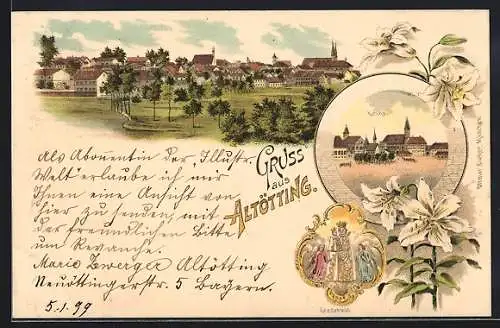 GRUSS
aus
ALTÖTTING.
Als Abonnentin der „Illustr.
Welt" erlaube ich mir
Ihnen eine Ansicht von
hier zu senden, mit
der freundlichen Bitte
um Revanche.
Marie Zwerger Altötting
Neuöttingerstr. 5 Bayern.
5.1.99